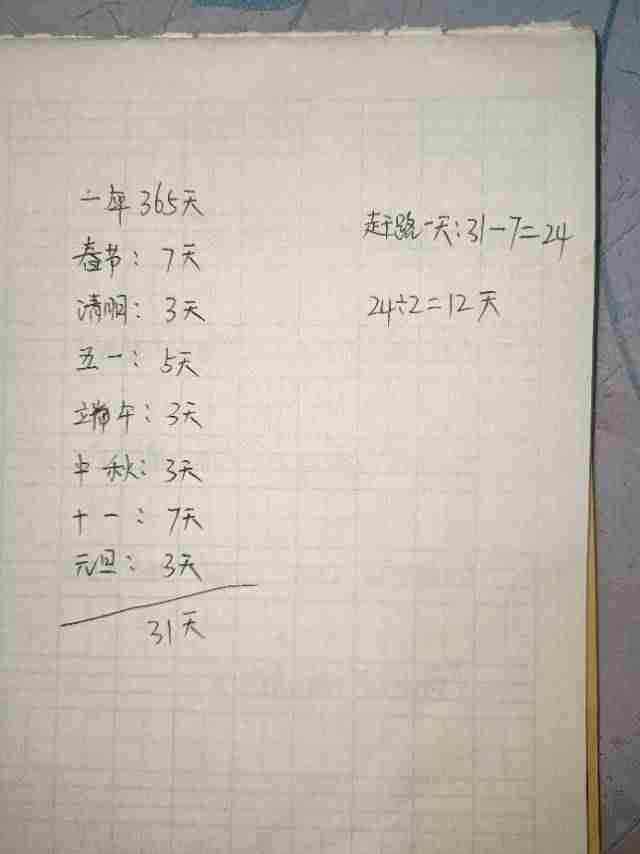 一年365天
春节：7天
清明：3天
五一：5天
端午：3天
中秋：3天
十一：7天
元旦：3天
31天
赶路一天：31-7=24
24÷2=12天